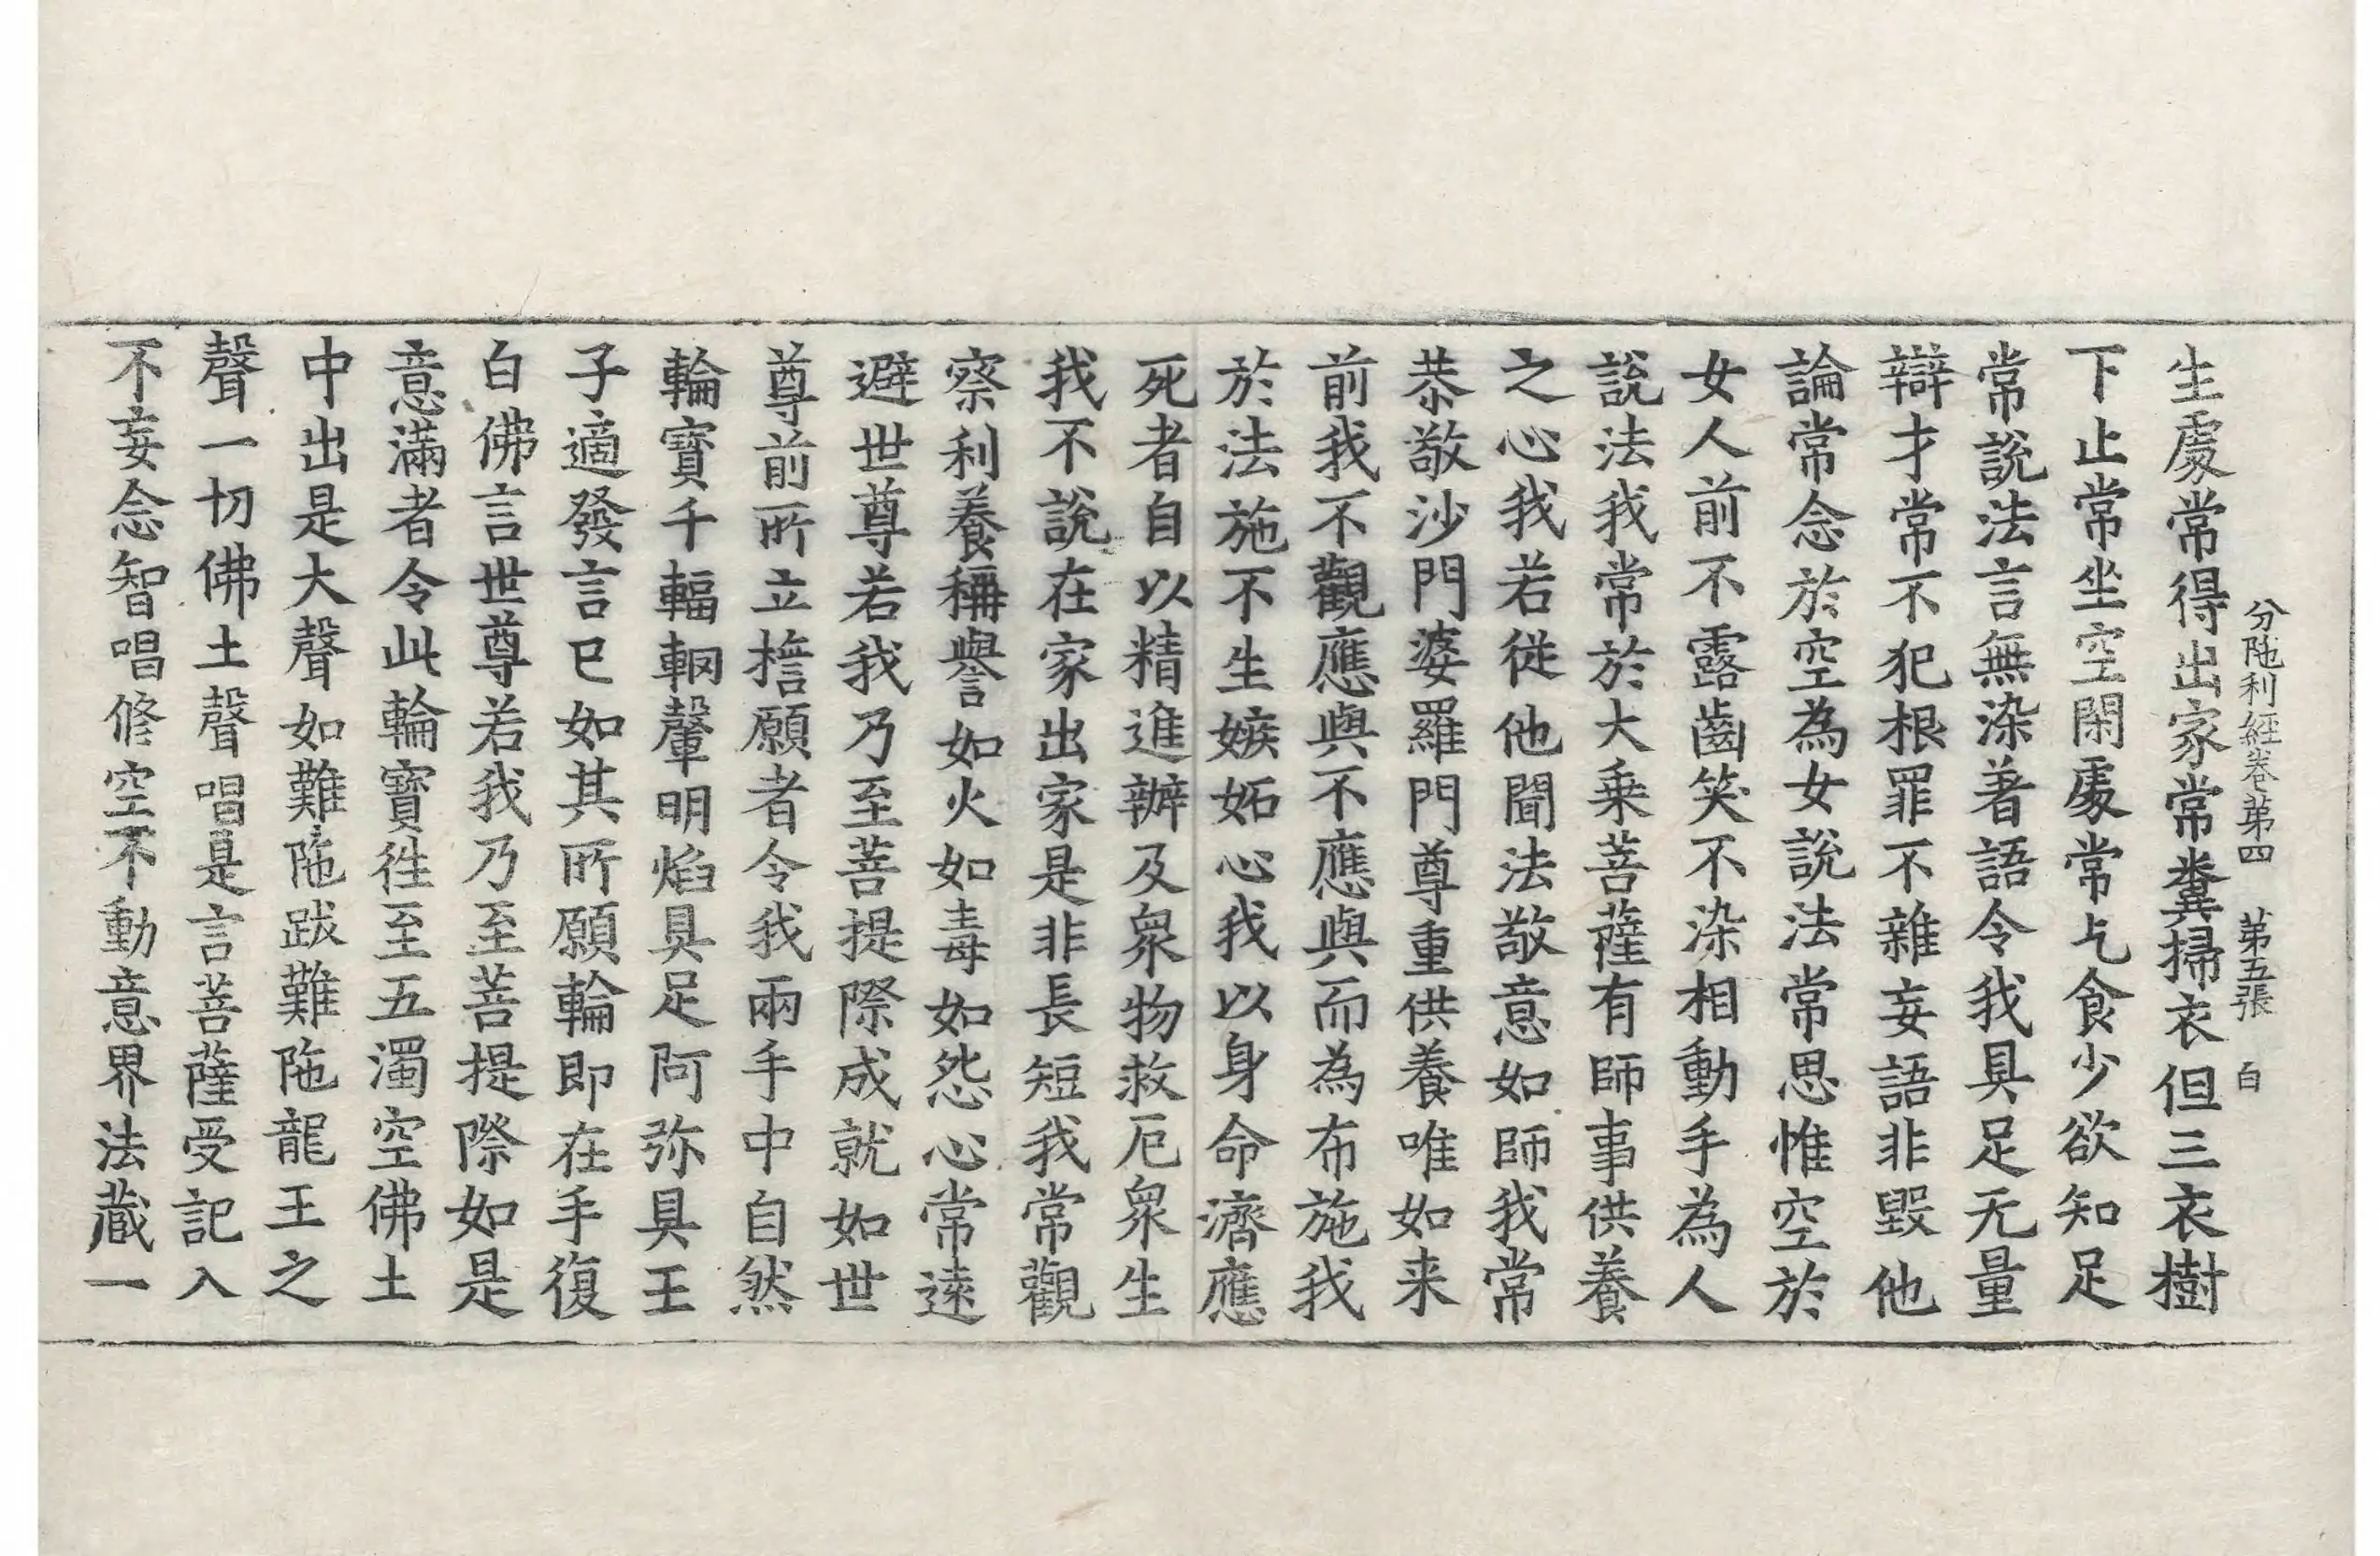 分陁利經卷第四　第五張　白
生處常得出家常糞掃衣但三衣樹
下止常坐空閑處常乞食少欲知足
常說法言無染著語令我具足无量
辯才常不犯根罪不雜妄語非毀他
論常念於空為女說法常思惟空於
女人前不露齒笑不染相動手為人
說法我常於大乗菩薩有師事供養
之心我若從他聞法敬意如師我常
恭敬沙門婆羅門尊重供養唯如来
前我不觀應與不應與而為布施我
於法施不生嫉妬心我以身命濟應
死者自以精進辦及衆物救厄衆生
我不說在家出家是非長短我常觀
察利養稱譽如火如毒如怨心常遠
避世尊若我乃至菩提際成就如世
尊前所立擔願者令我兩手中自然
輪寶千輻輞轂明焰具足阿弥具王
子適發言已如其所願輪即在手復
白佛言世尊若我乃至菩提際如是
意滿者令此輪寶徃至五濁空佛土
中出是大聲如難陁跋難陁龍王之
聲一切佛土聲唱是言菩薩受記入
不妄念智唱修空不動意界法藏一